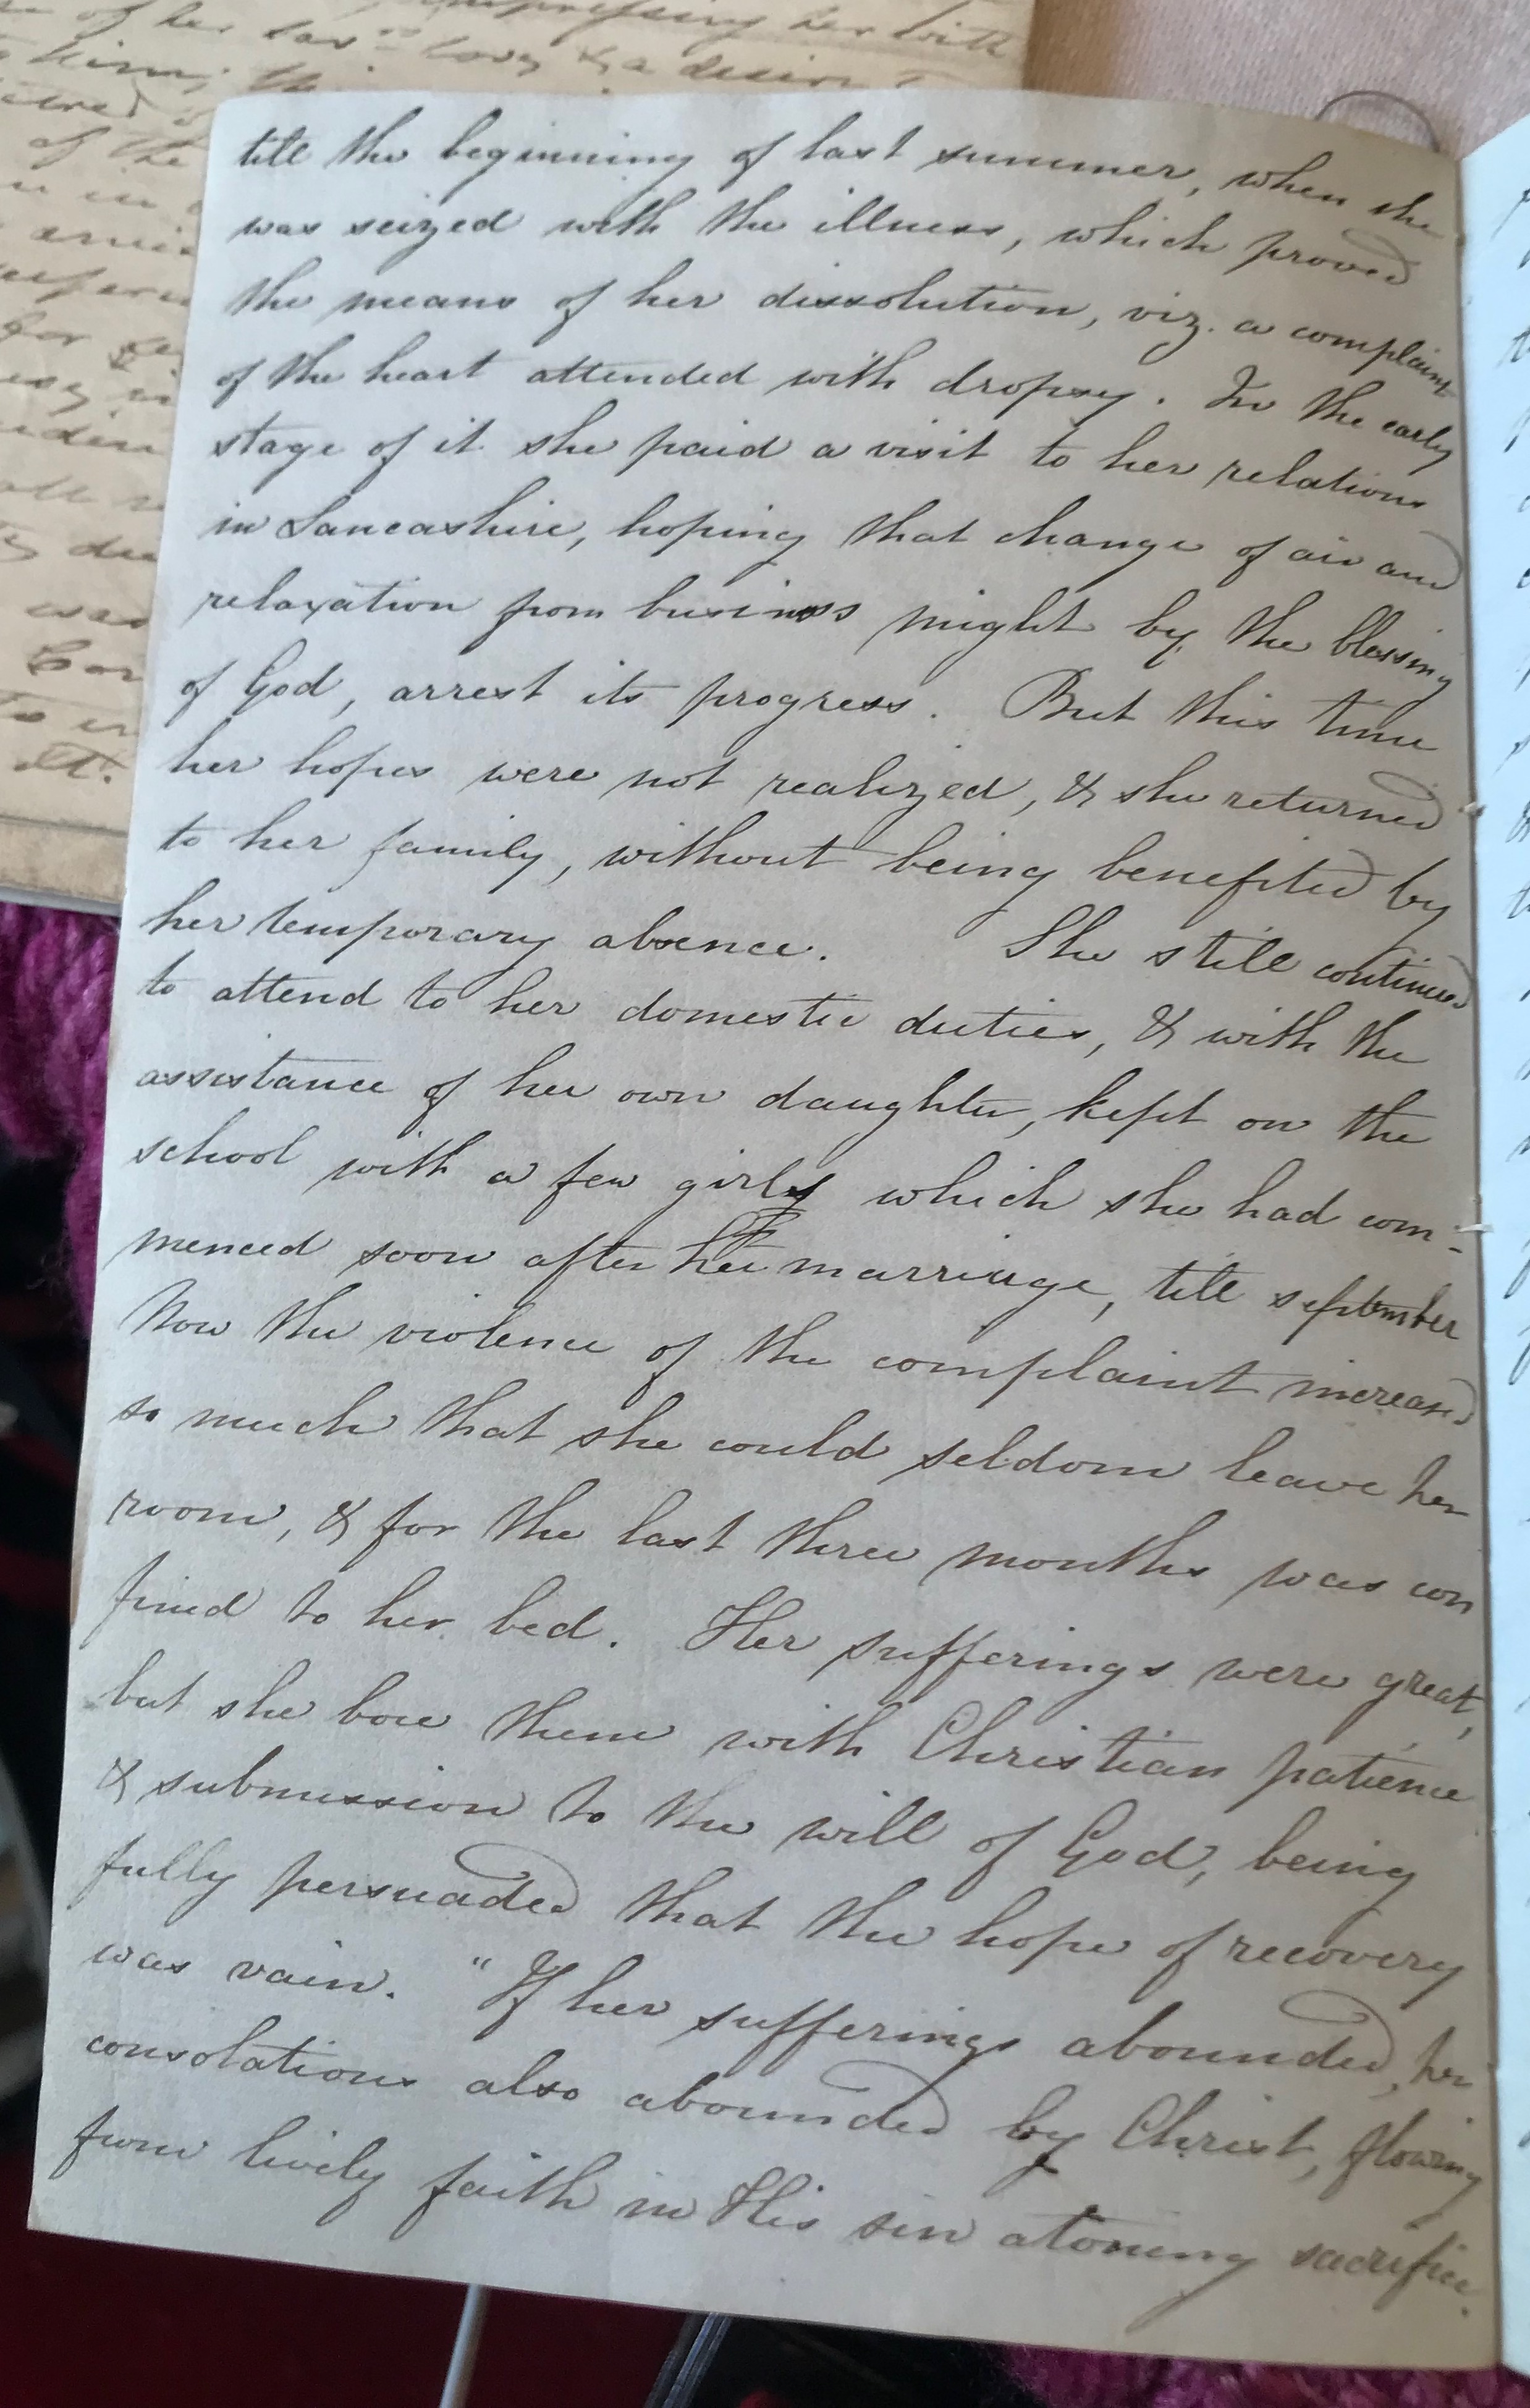 of her Sav.r's love & a desire
him;
of the
was
Cor
to
it.
till the beginning of last summer, when she
was seized with the illness, which proved
the means of her dissolution, viz. a complaint
of the heart attended with dropsy. In the early
stage of it she paid a visit to her relations
in Lancashire, hoping that change of air and
relaxation from business might by the blessing
of God, arrest its progress. But this time
her hopes were not realized, & she returned
to her family, without being benefited by
her temporary absence. She still continued
to attend to her domestic duties, & with the
assistance of her own daughter, kept on the
school with a few girls which she had com-
menced soon after her marriage, till september
Now the violence of the complaint increased
so much that she could seldom leave her
room, & for the last three months was con
fined to her bed. Her sufferings were great,
but she bore them with Christian patience
& submission to the will of God, being
fully persuaded that the hope of recovery
was vain. "If her sufferings abounded, her
consolations also abounded by Christ, flowing
from lively faith in His sin atoning sacrifice.